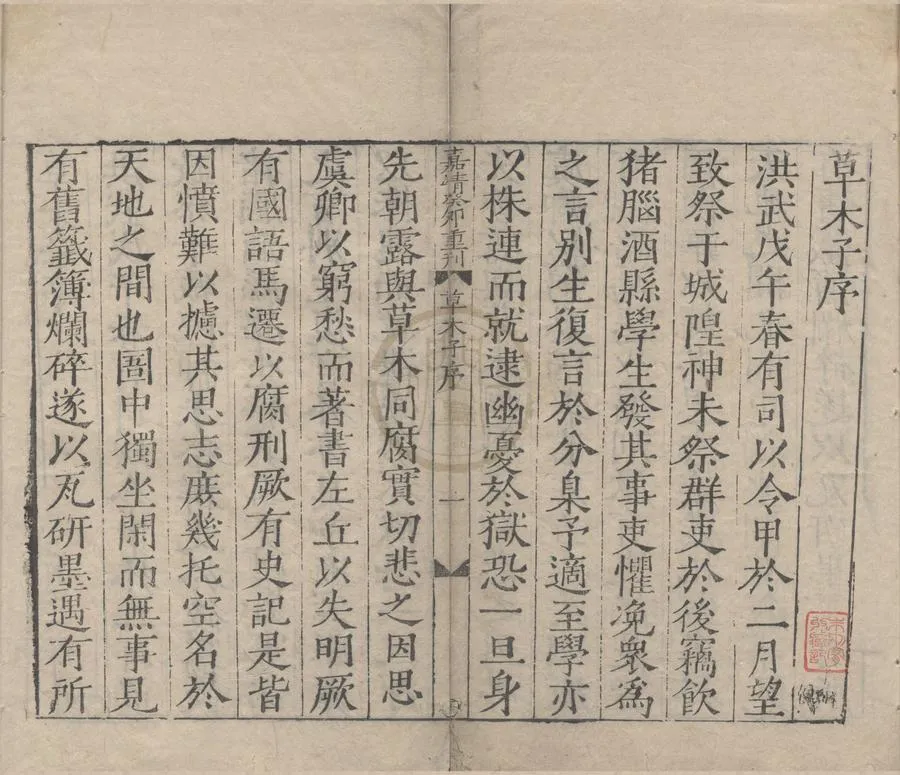 草木子序
洪武戊午春有司以令甲於二月望
致祭于城隍神未祭群吏於後竊飲
猪腦酒縣學生發其事吏懼浼衆爲
之言别生復言於分臬予適至學亦
以株連而就逮幽憂於獄恐一旦身
嘉靖癸卯重刊
草木子序
一
先朝露與草木同腐實切悲之因思
虞卿以窮愁而著書左丘以失明厥
有國語馬遷以腐刑厥有史記是皆
因憤難以攄其思志庶幾托空名於
天地之間也圄中獨坐閑而無事見
有舊籤簿爛碎遂以瓦研墨遇有所